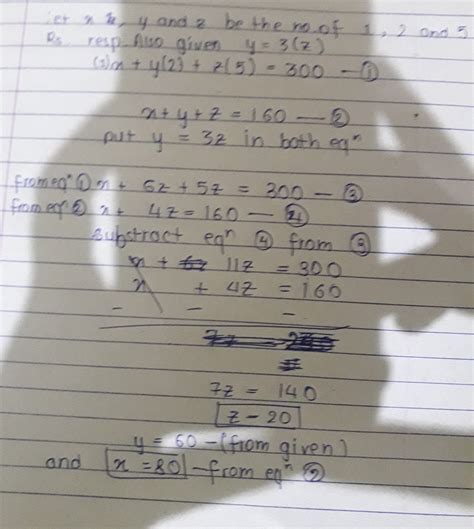 let x, y and z be the no. of 1, 2 and 5
Rs resp. Also given y = 3(z)
(1)x + y(2) + z(5) = 300 — ①
x + y + z = 160 — ②
put y = 3z in both eqⁿ
from eqⁿ ① x + 6z + 5z = 300 — ③
from eqⁿ ② x + 4z = 160 — ④
substract eqⁿ ④ from ③
x + 11z = 300
x + 4z = 160
- - -
7z = 140
z - 20
y = 60 - (from given)
and x = 80 - from eqⁿ ②